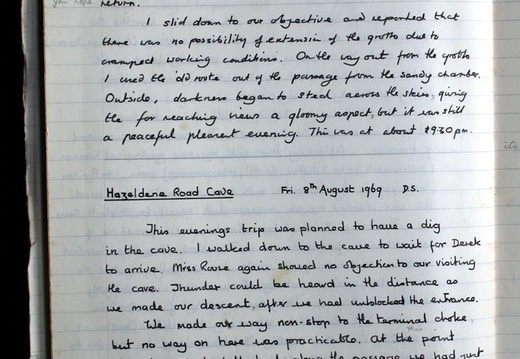 return.
I slid down to our objective and reported that
there was no possibility of extension of the grotto due to
cramped working conditions. On the way out from the grotto
I used the old route out of the passage from the sandy chamber.
Outside, darkness began to steal across the skies, giving
the far reaching views a gloomy aspect, but it was still
a peaceful pleasant evening. This was at about 9.30 pm.
Hazeldene Road Cave Fri. 8th August 1969 D.S.
This evenings trip was planned to have a dig
in the cave. I walked down to the cave to wait for Derek
to arrive. Miss Rouse again showed no objection to our visiting
the cave. Thunder could be heard in the distance as
we made our descent, after we had unblocked the entrance.
We made our way non-stop to the terminal choke,
this
but no way on here was practicable. At the point
along the passage we had just